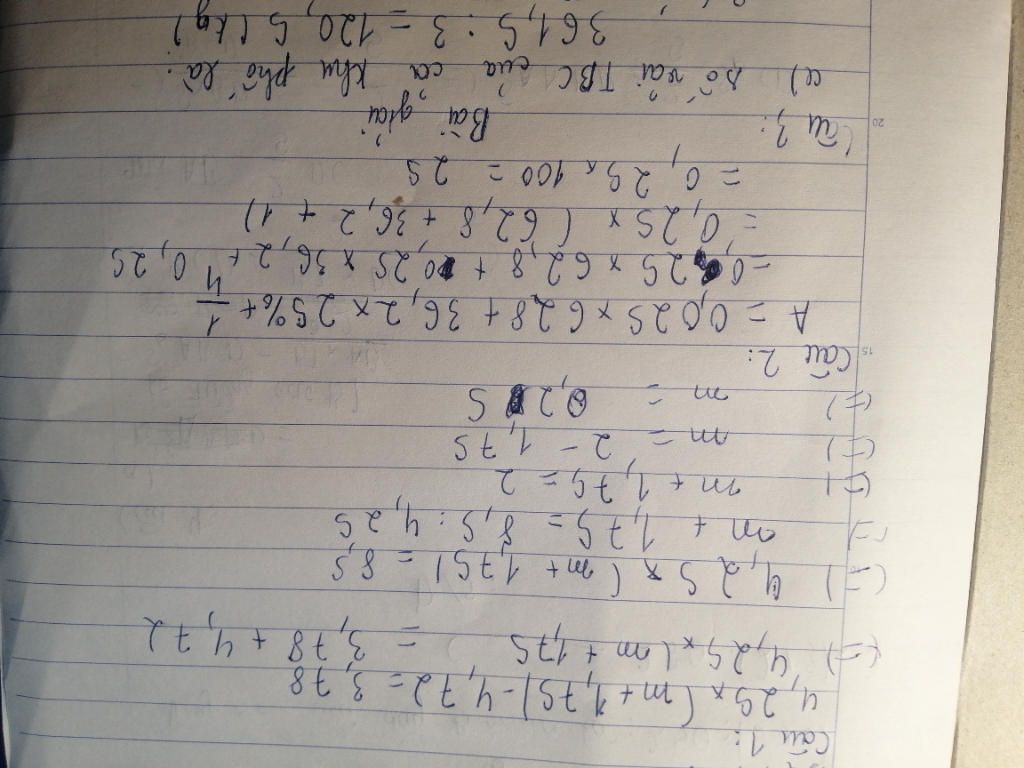 Câu 1:
4,25 x (m + 1,75) - 4,72 = 3,78
(=) 4,25 x (m + 1,75 = 3,78 + 4,72
(=) 4,25 x (m + 1,75) = 8,5
(=) m + 1,75 = 8,5 : 4,25
(=) m + 1,75 = 2
(=) m = 2 - 1,75
(=) m = 0,25
Câu 2:
A = 0,025 x 628 + 36,2 x 25% + 1/4
= 0,25 x 62,8 + 0,25 x 36,2 + 0,25
= 0,25 x (62,8 + 36,2 + 1)
= 0,25 x 100 = 25
Câu 3: Bài giải
a) Số vải TBC của cả khu phố là:
361,5 : 3 = 120,5 (kg)